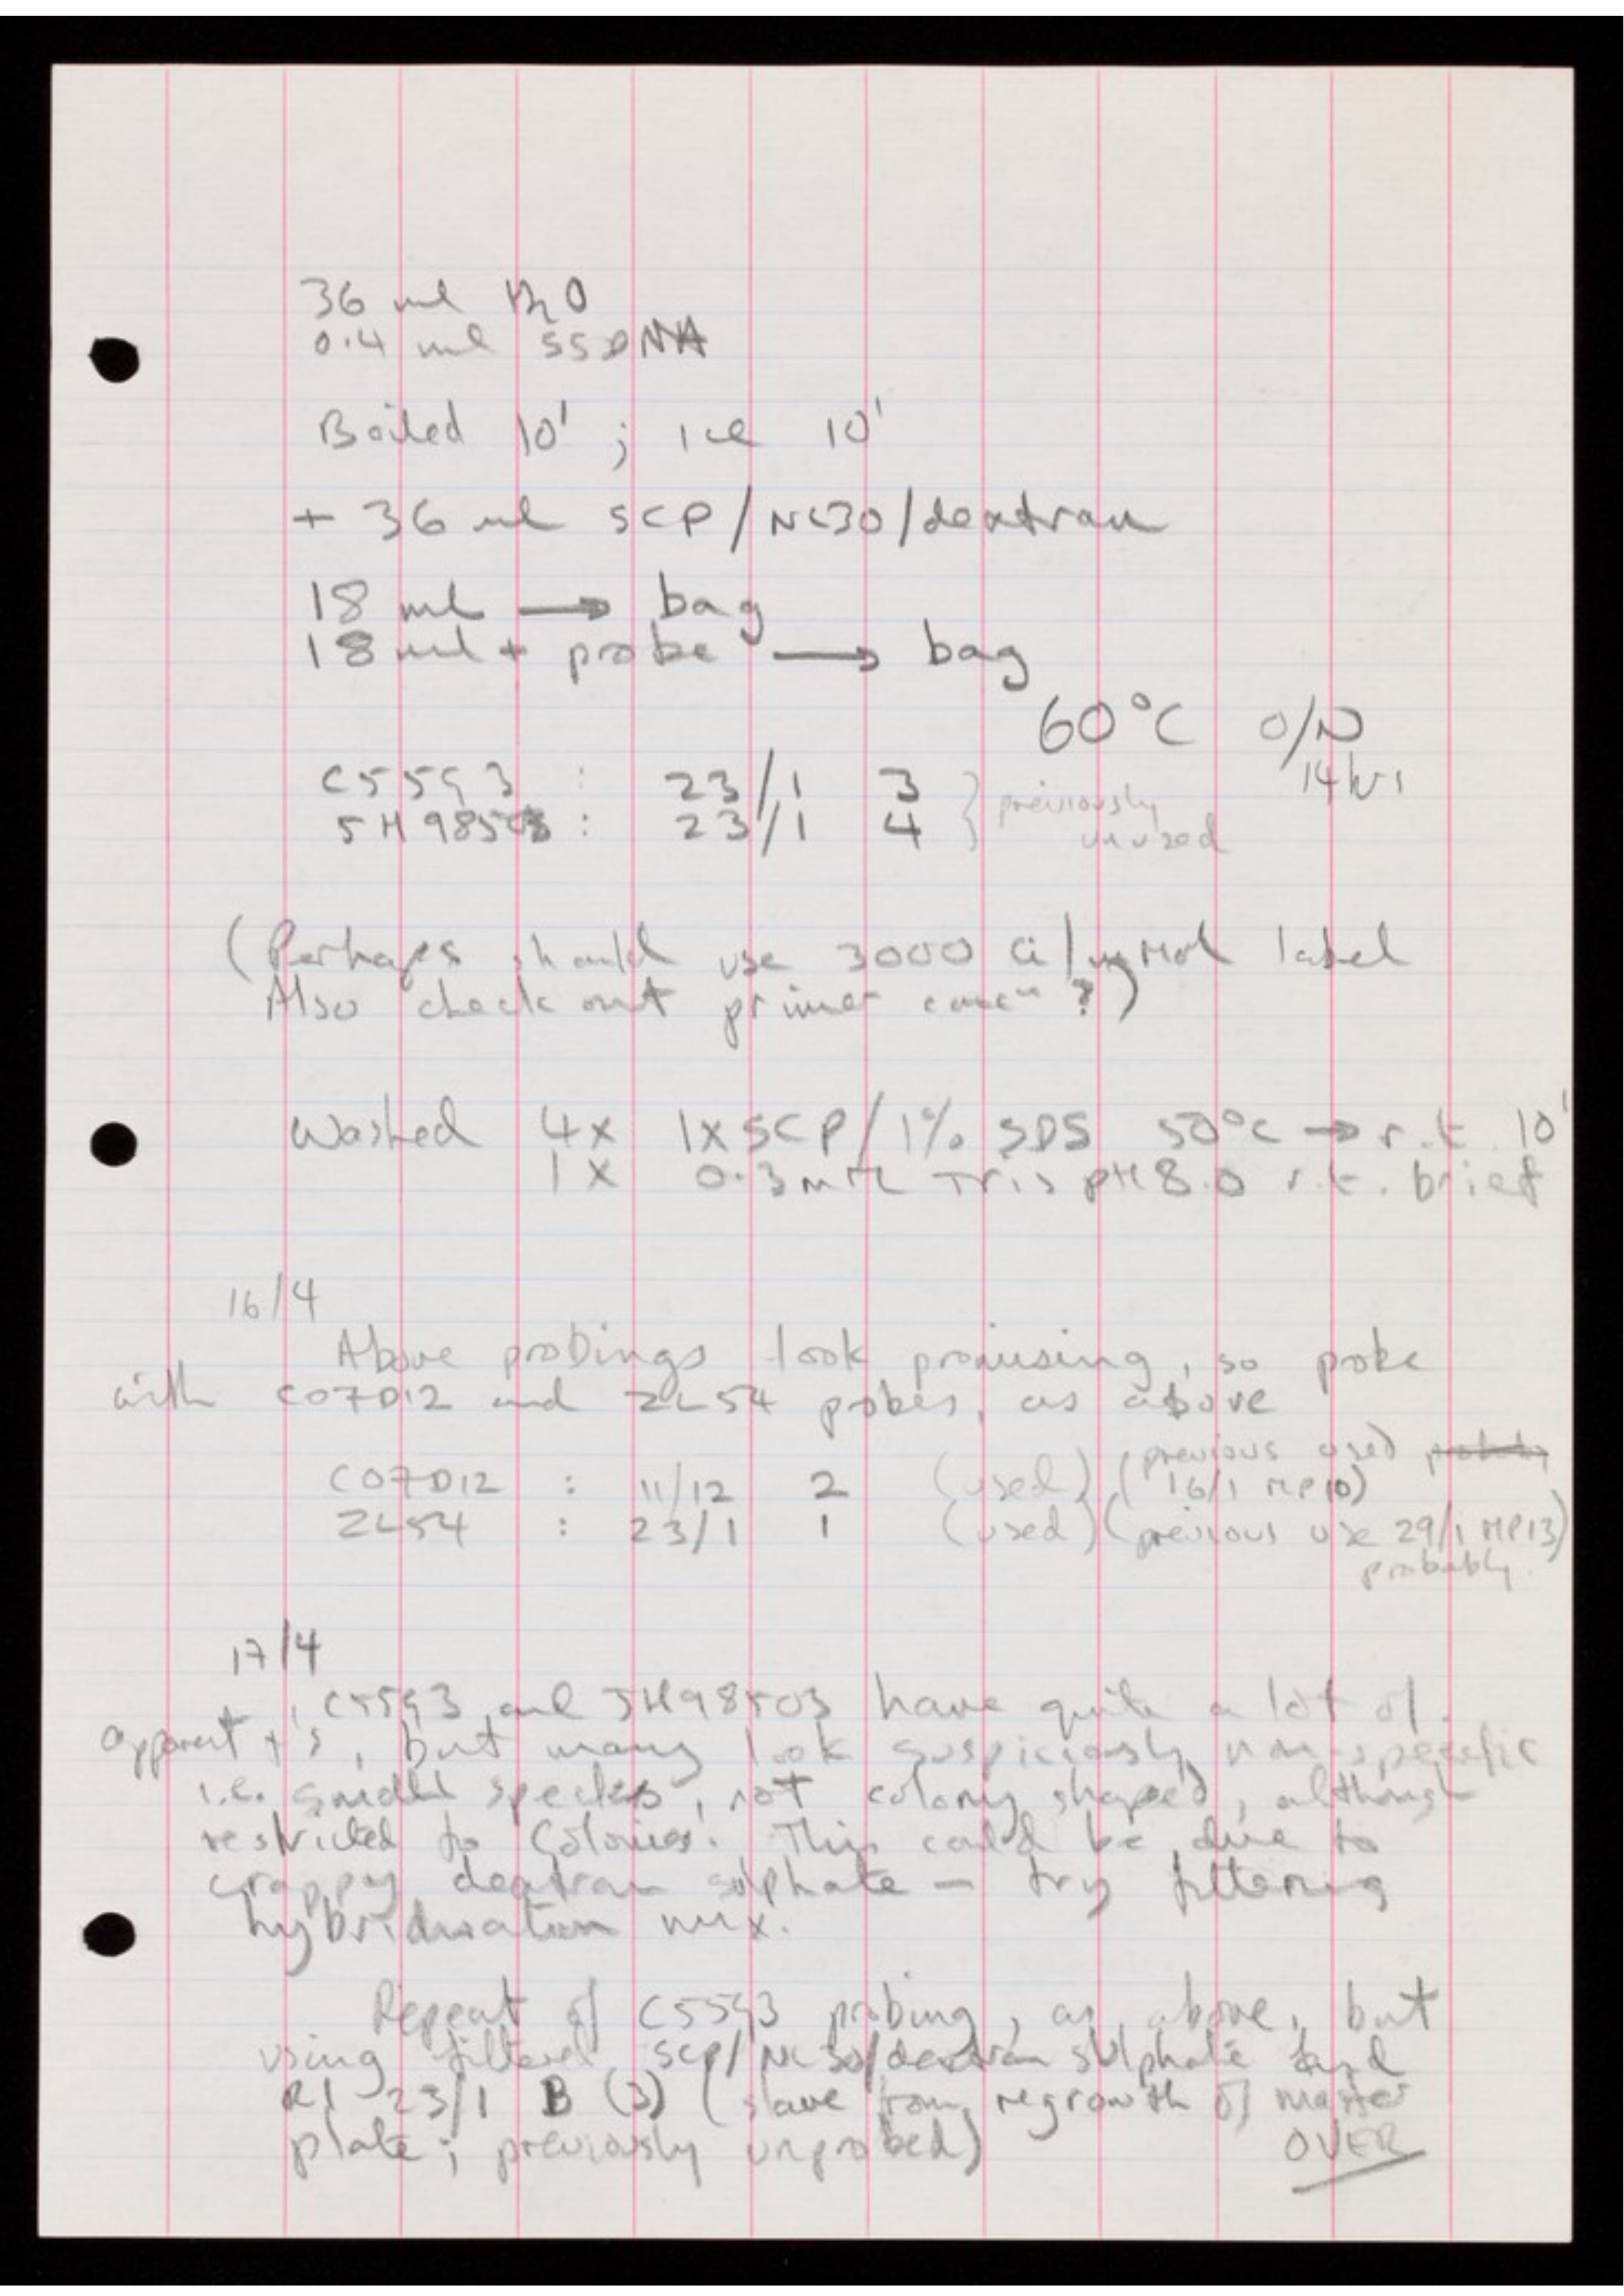 36 ml H2O
0.4 ml SSDNA
Boiled 10' ; ice 10'
+ 36 ml SCP/NL30/dextran
18 ml → bag
18 ml + probe → bag
60°C O/N
14 hrs
C5593 : 23/1 3 } previously
JH98503 : 23/1 4 unused
(Perhaps should use 3000 Ci/mMol label
Also check out primer concn ?)
Washed 4x 1xSCP/1% SDS 50°C → r.t. 10'
1X 0.3 mM Tris pH 8.0 r.t. brief
16/4
Above probings look promising, so probe
with C07D12 and ZL54 probes, as above
C07D12 : 11/12 2 (used) (previous used probably
16/1 MP10)
ZL54 : 23/1 1 (used) (previous use 29/1 MP13)
probably.
17/4
C5593 and JH98503 have quite a lot of
apparent +'s, but many look suspiciously non-specific
i.e. small speckles, not colony shaped, although
restricted to colonies. This could be due to
crappy dextran sulphate – try filtering
hybridisation mix.
Repeat of C5593 probing, as above, but
using filtered SCP/NL30/dextran sulphate and
R1 23/1 B (3) (slave from regrowth of master
plate; previously unprobed)
OVER